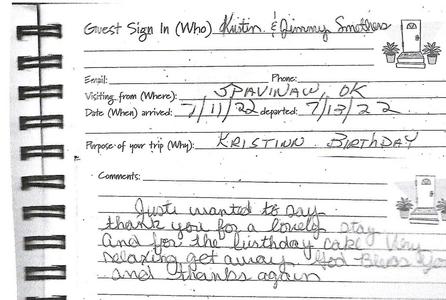 Guest Sign In (Who) Kristin & Jimmy Smothers
Email: Phone:
Visiting from (Where): SPAVINAW, OK
Date (When) arrived: 7/11/22 departed: 7/13/22
Purpose of your trip (Why): KRISTINN BIRTHDAY
Comments:
Just wanted to say
thank you for a lovely stay
and for the birthday cake Very
relaxing get away God Bless You
and thanks again